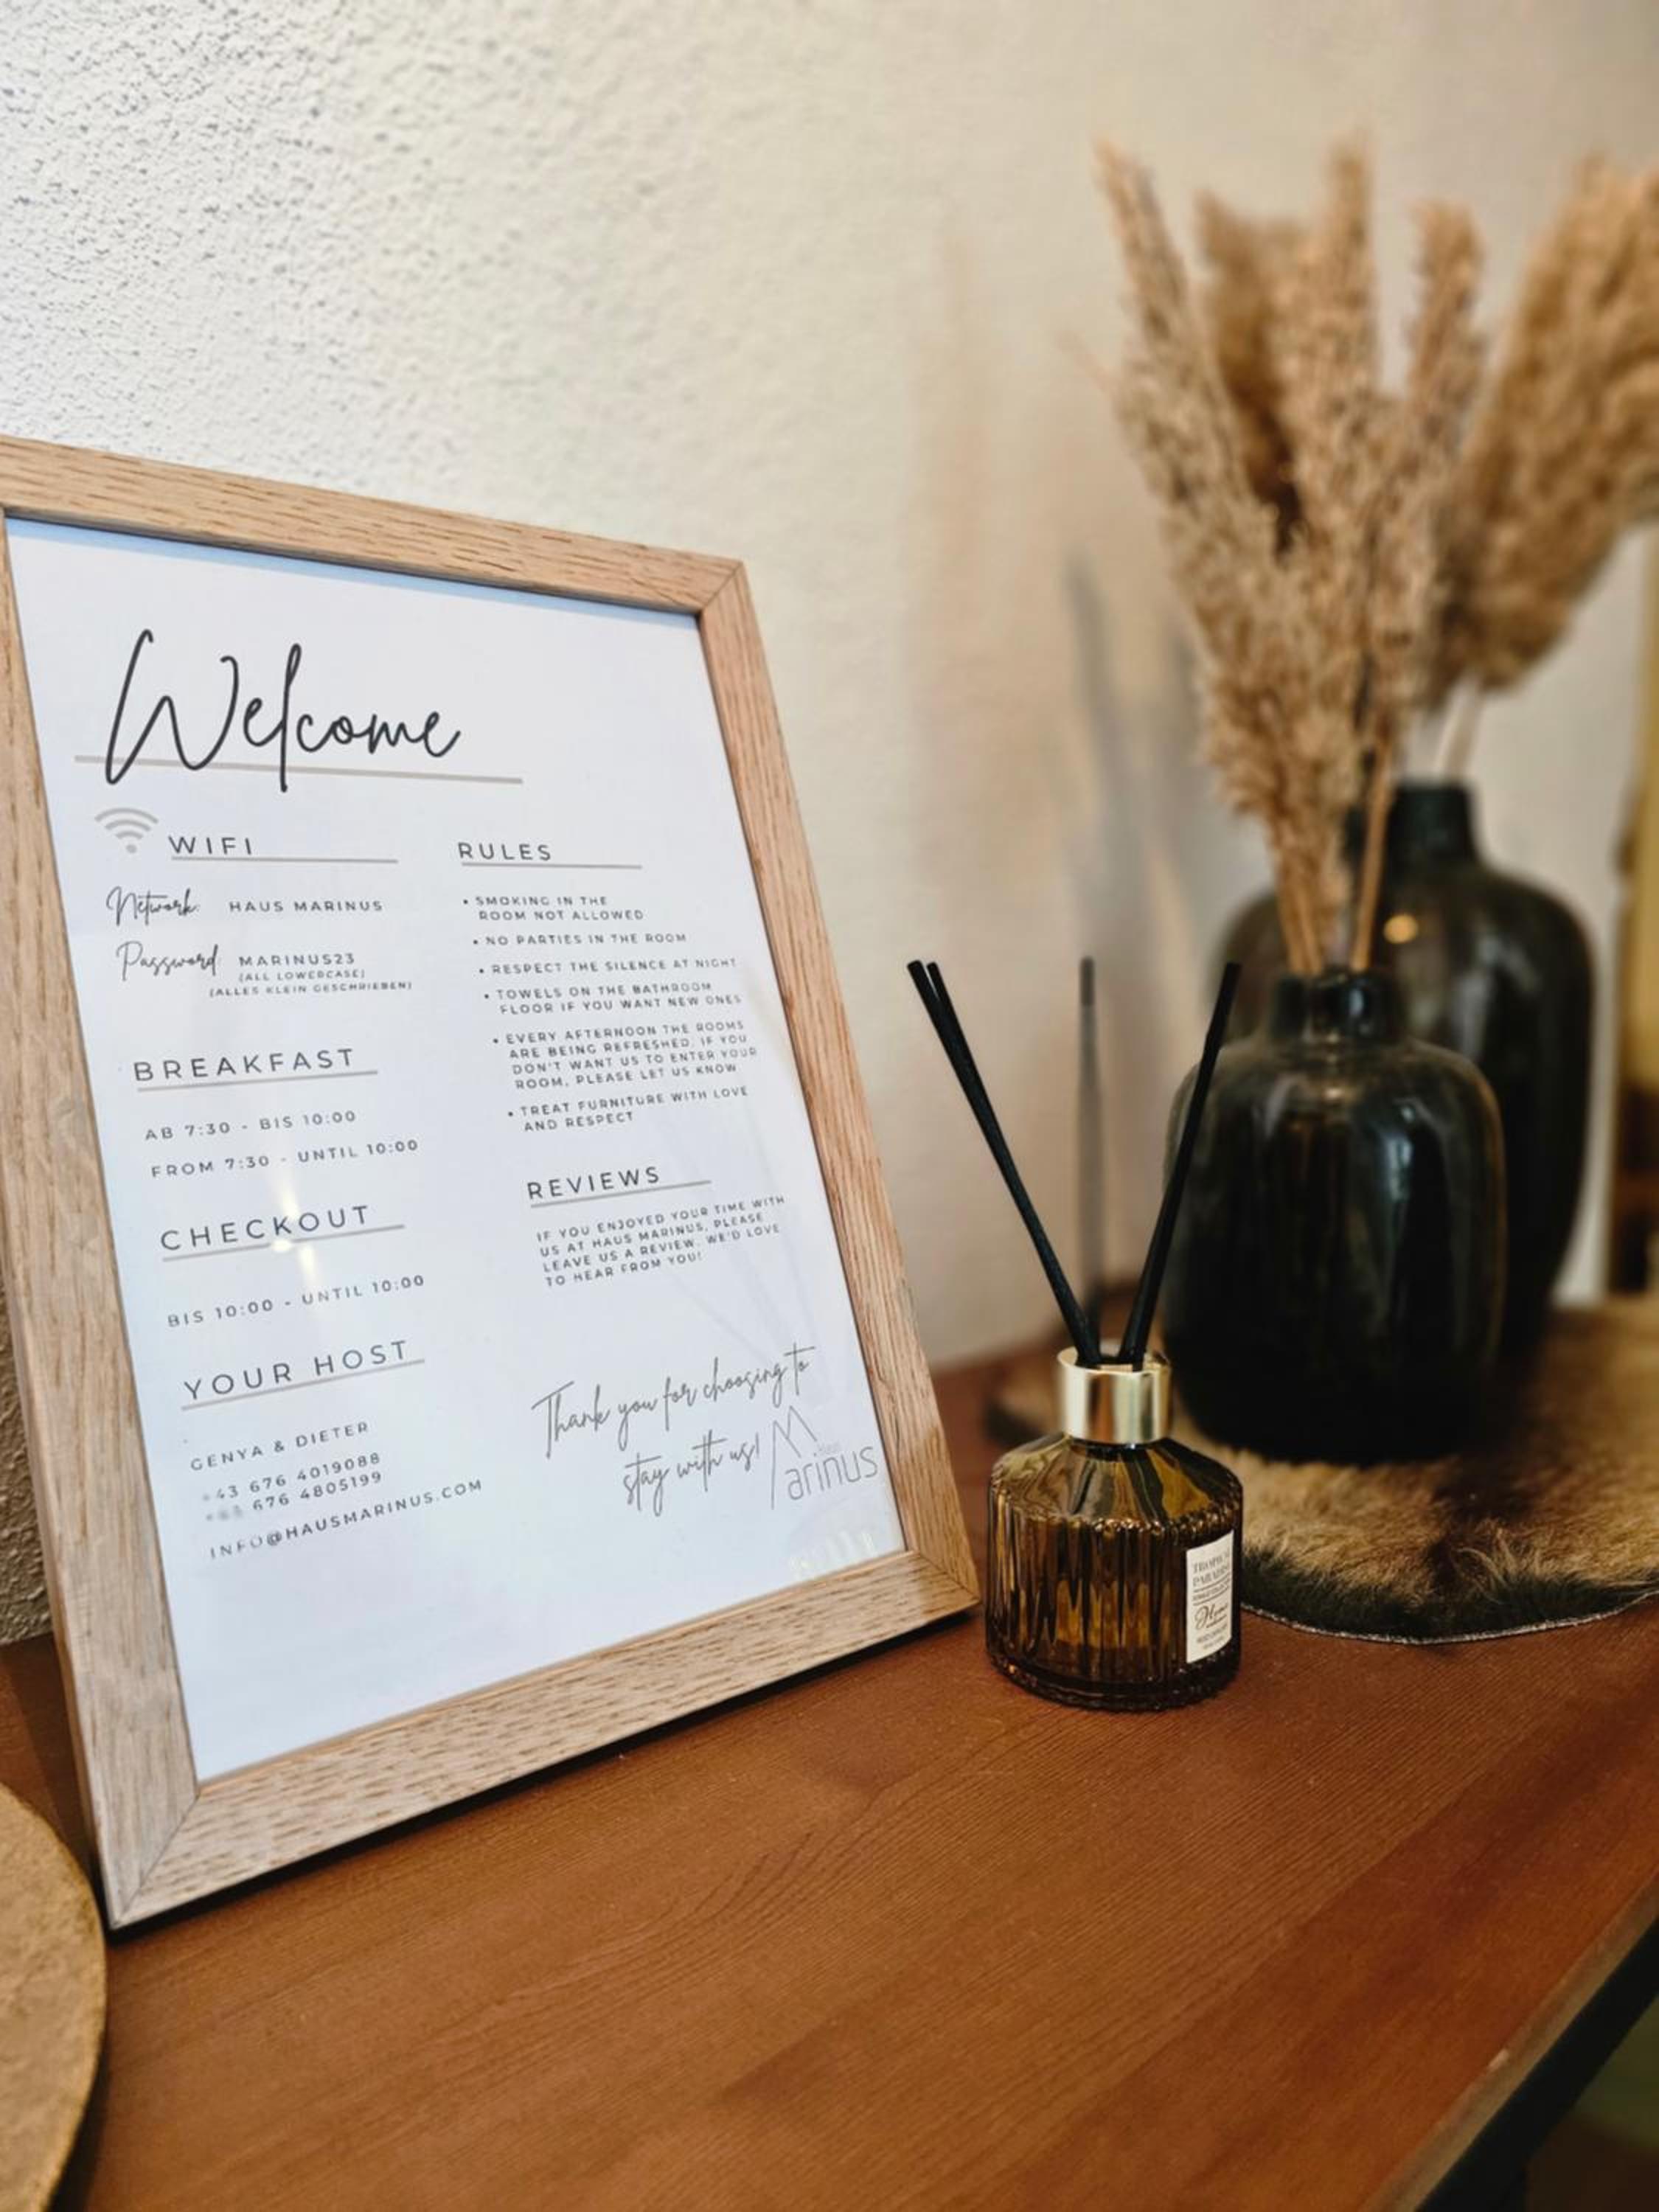 Welcome
WIFI
Network: HAUS MARINUS
Password: MARINUS23
(ALL LOWERCASE)
(ALLES KLEIN GESCHRIEBEN)
BREAKFAST
AB 7:30 - BIS 10:00
FROM 7:30 - UNTIL 10:00
CHECKOUT
BIS 10:00 - UNTIL 10:00
YOUR HOST
GENYA & DIETER
+43 676 4019088
+43 676 4805199
INFO@HAUSMARINUS.COM
RULES
• SMOKING IN THE
ROOM NOT ALLOWED
• NO PARTIES IN THE ROOM
• RESPECT THE SILENCE AT NIGHT
• TOWELS ON THE BATHROOM
FLOOR IF YOU WANT NEW ONES
• EVERY AFTERNOON THE ROOMS
ARE BEING REFRESHED. IF YOU
DON'T WANT US TO ENTER YOUR
ROOM, PLEASE LET US KNOW
• TREAT FURNITURE WITH LOVE
AND RESPECT
REVIEWS
IF YOU ENJOYED YOUR TIME WITH
US AT HAUS MARINUS, PLEASE
LEAVE US A REVIEW. WE'D LOVE
TO HEAR FROM YOU!
Thank you for choosing to
stay with us!
Haus
Marinus
TROPICAL
PARADISE
Home